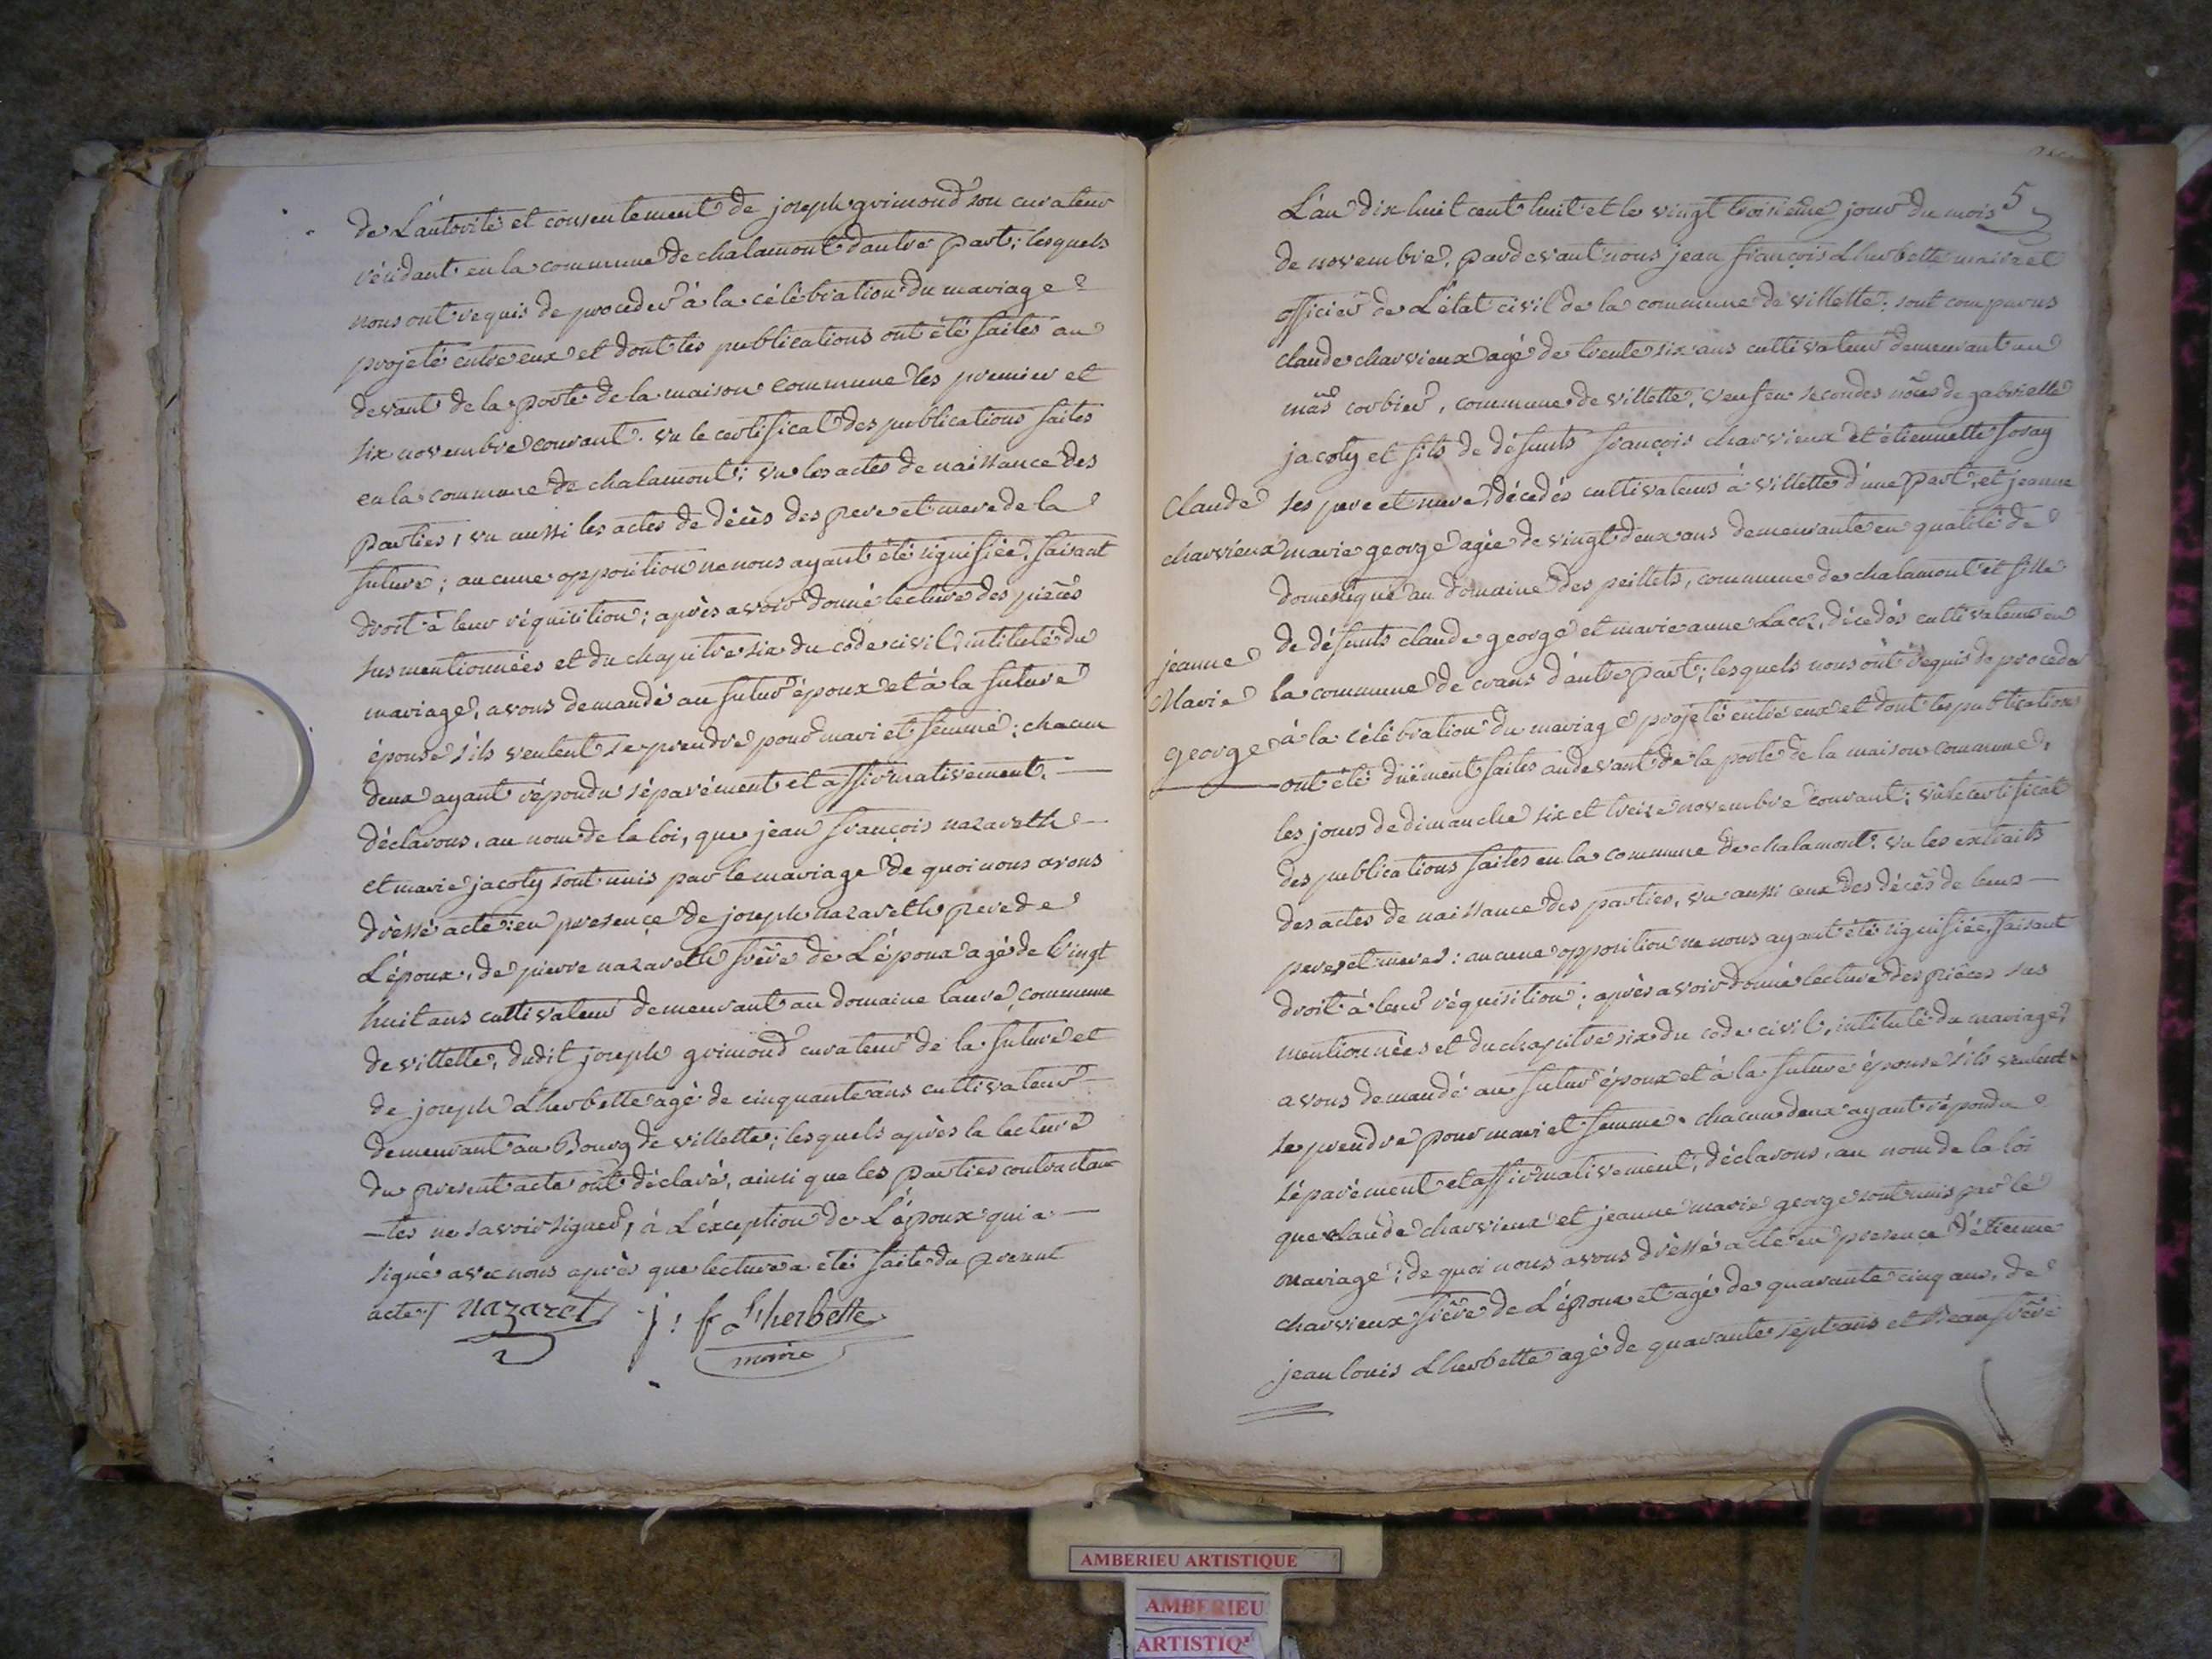 de L'autorité et consentement de joseph grimond son curateur
résidant en la commune de chalamont d'autre part; lesquels
nous ont requis de proceder à la célébration du mariage
projeté entre eux et dont les publications ont été faites au
devant de la porte de la maison commune les premier et
six novembre courant. vu le certificat des publications faites
en la commune de chalamont; vu les actes de naissance des
parties, vu aussi les actes de décès des pere et mere de la
future; aucune opposition ne nous ayant été signifiée, faisant
droit à leur réquisition; après avoir donné lecture des pièces
sus mentionnées et du chapitre six du code civil, intitulé du
mariage, avons demandé au futur époux et à la future
épouse s'ils veulent se prendre pour mari et femme; chacun
deux ayant répondu séparément et affirmativement.
déclarons, au nom de la loi, que jean françois nazareth
et marie jacoty sont unis par le mariage de quoi nous avons
dressé acte: en presence de joseph nazareth pere de
L'époux, de pierre nazareth frère de L'époux agé de vingt
huit ans cultivateur demeurant au domaine laure, commune
de villette, dudit joseph grimond curateur de la future et
de joseph Lherbette agé de cinquante ans cultivateur
demeurant au Bourg de villette; lesquels après la lecture
du present acte ont déclaré, ainsi que les parties contractan
-tes ne savoir signer, à L'éxception de L'époux qui a
signé avec nous après que lecture a été faite du present
acte./. nazaret j: f Lherbette
maire
5
L'an dix huit cent huit et le vingt troisieme jour du mois
de novembre, pardevant nous jean françois Lherbette maire et
officier de L'état civil de la commune de villette: sont comparus
claude charvieux agé de trente six ans cultivateur demeurant au
mas corbier, commune de villette, veuf en secondes nôces de gabrielle
jacoty et fils de défunts françois charvieux et étiennette soray
ses pere et mere, décedés cultivateurs à villette d'une part, et jeanne
marie george agée de vingt deux ans demeurante en qualité de
domestique au domaine des peillets, commune de chalamont et fille
de défunts claude george et marie anne Lacoz, décedés cultivateurs en
la commune de crans d'autre part; lesquels nous ont requis de proceder
à la célébration du mariage projeté entre eux et dont les publications
ont été duëment faites au devant de la porte de la maison commune,
les jours de dimanche six et treize novembre courant; vu le certificat
des publications faites en la commune de chalamont: vu les extraits
des actes de naissance des parties, vu aussi ceux des décès de leurs
peres et meres: aucune opposition ne nous ayant été signifiée, faisant
droit à leur réquisition; après avoir donné lecture des pièces sus
mentionnées et du chapitre six du code civil, intitulé du mariage,
avons demandé au futur époux et à la future épouse s'ils veulent
se prendre pour mari et femme. chacun deux ayant répondu
séparément et affirmativement, déclarons, au nom de la loi
que claude charvieux et jeanne marie george sont unis par le
mariage; de quoi nous avons dressé acte en presence d'étienne
charvieux frère de L'époux et agé de quarante cinq ans, de
jean louis Lherbette agé de quarante sept ans et Beaufrère
Claude
charvieux
jeanne
Marie
george
AMBERIEU ARTISTIQUE
AMBERIEU
ARTISTIQ